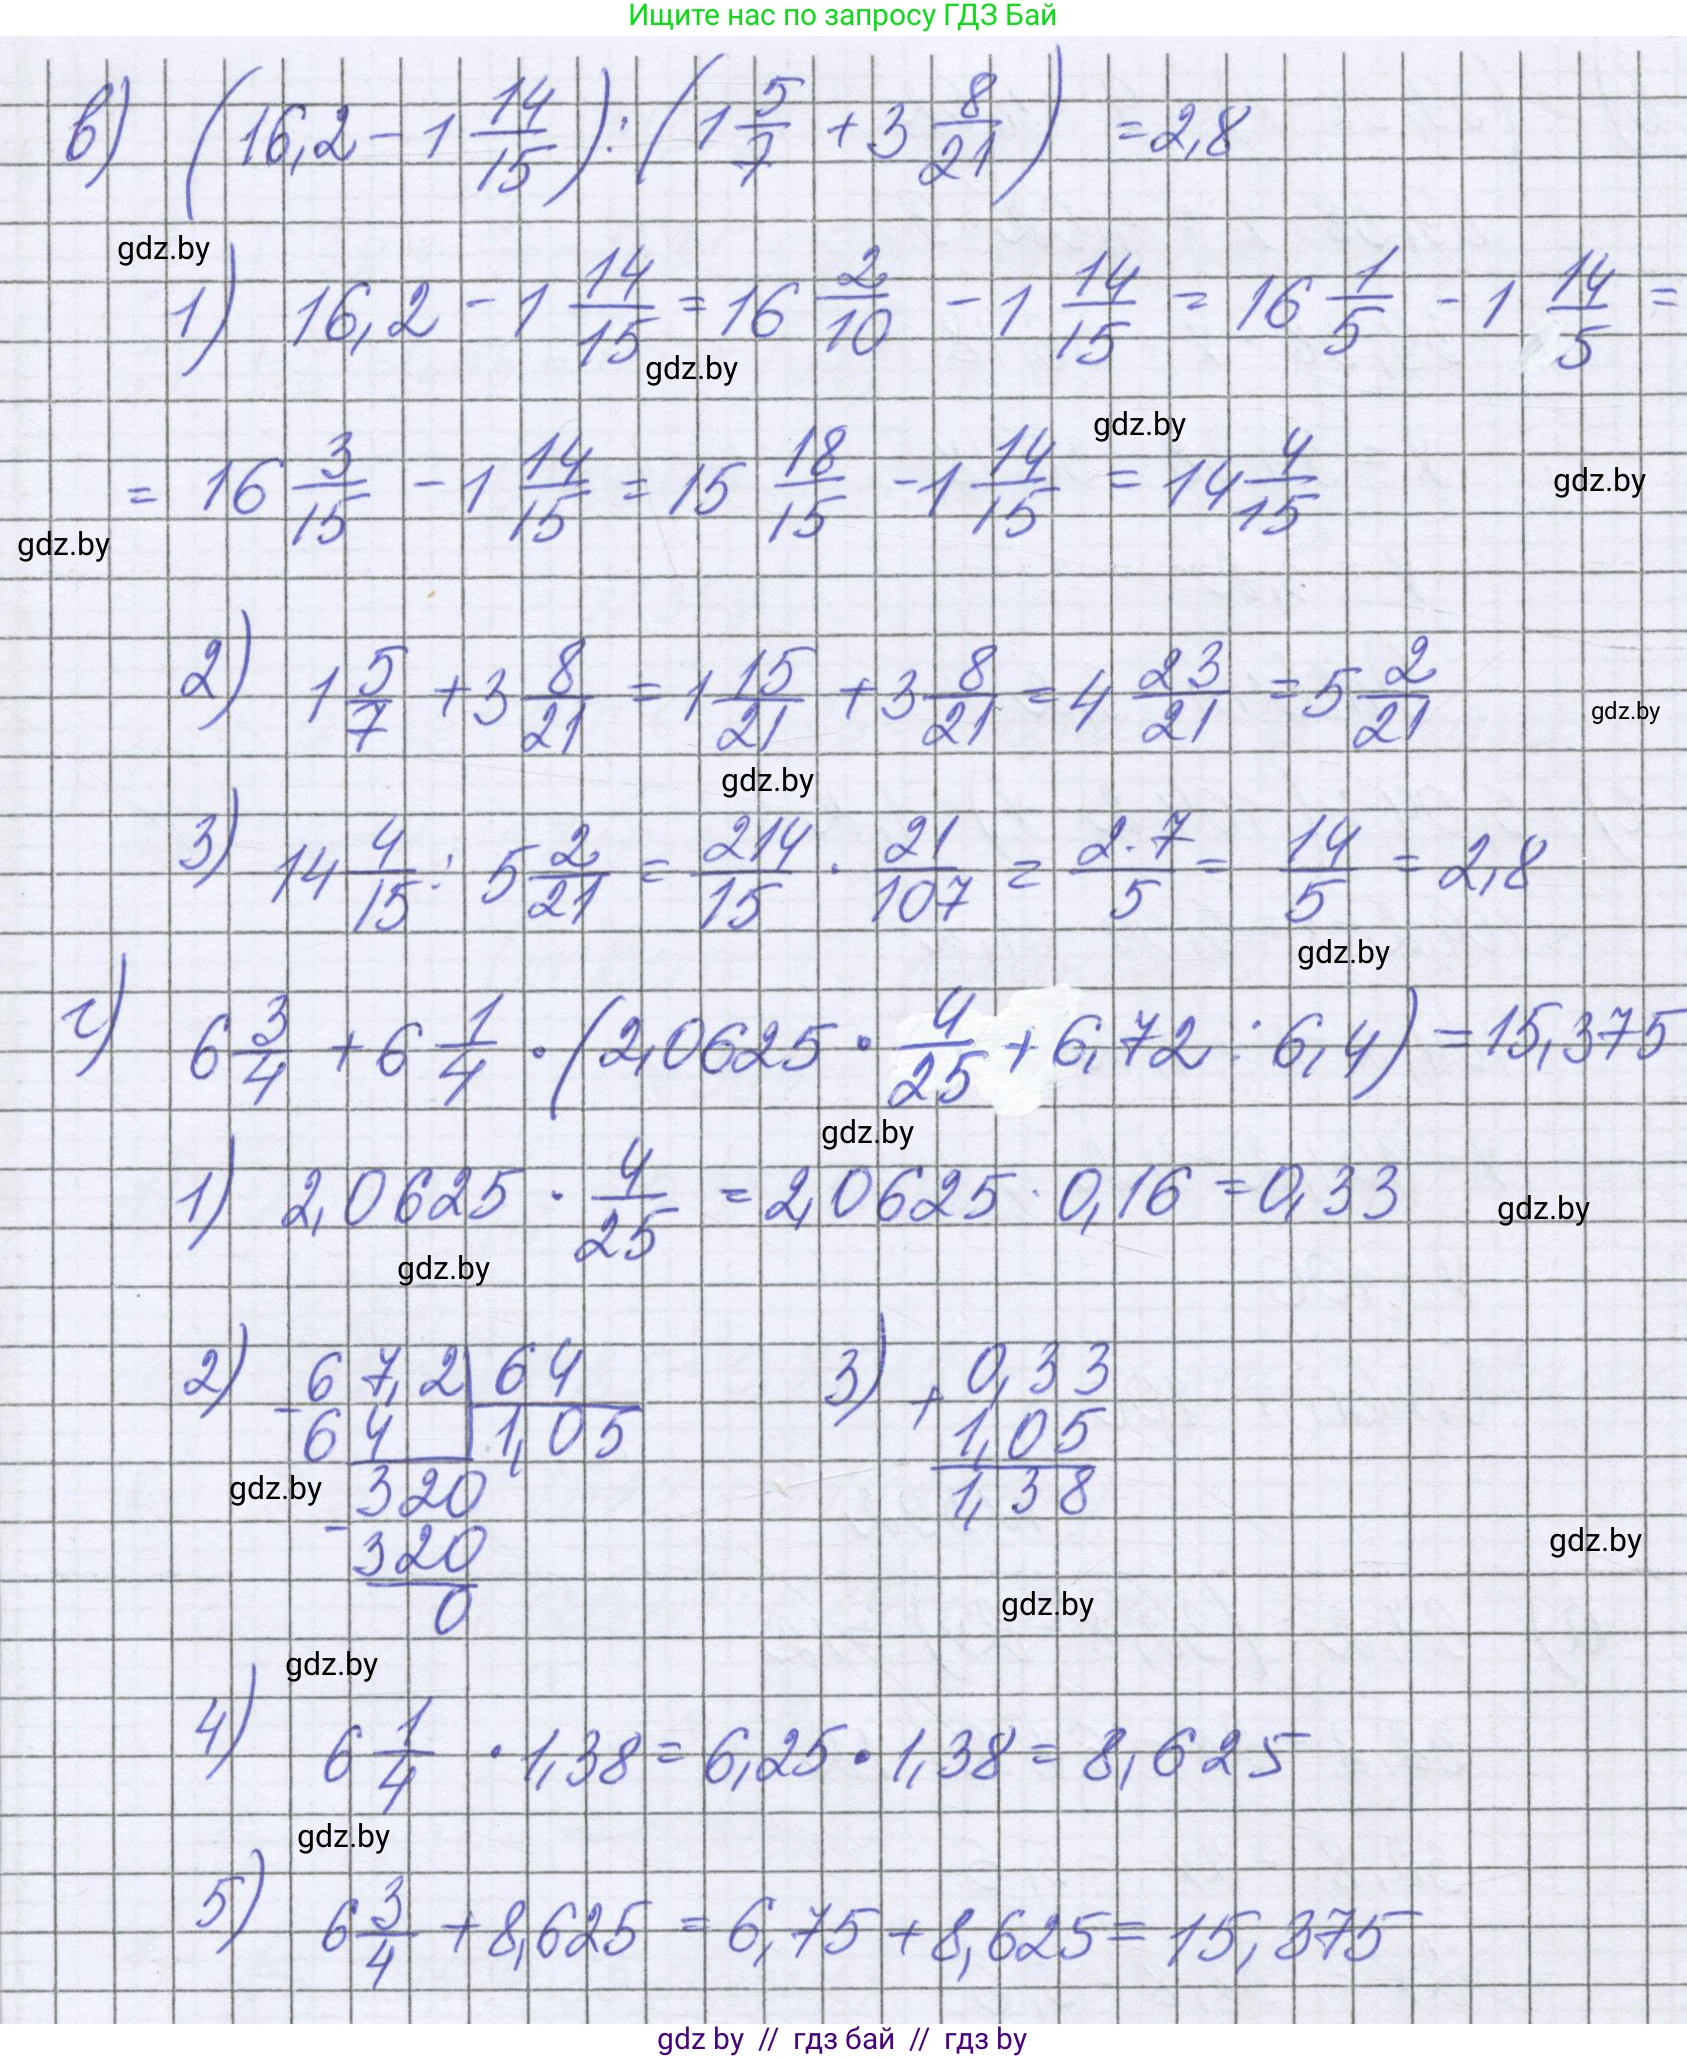 Ищите нас по запросу ГДЗ Бай
в) (16,2 - 1 14/15) : (1 5/7 + 3 8/21) = 2,8
gdz.by
1) 16,2 - 1 14/15 = 16 2/10 - 1 14/15 = 16 1/5 - 1 14/5 =
gdz.by
gdz.by
= 16 3/15 - 1 14/15 = 15 18/15 - 1 14/15 = 14 4/15
gdz.by
gdz.by
2) 1 5/7 + 3 8/21 = 1 15/21 + 3 8/21 = 4 23/21 = 5 2/21
gdz.by
gdz.by
3) 14 4/15 : 5 2/21 = 214/15 · 21/107 = 2·7/5 = 14/5 = 2,8
gdz.by
г) 6 3/4 + 6 1/4 · (2,0625 · 4/25 + 6,72 : 6,4) = 15,375
gdz.by
1) 2,0625 · 4/25 = 2,0625 · 0,16 = 0,33
gdz.by
gdz.by
2) - 67,2 | 64
64 | 1,05
gdz.by
320
- 320
0
3) + 0,33
1,05
1,38
gdz.by
gdz.by
gdz.by
4) 6 1/4 · 1,38 = 6,25 · 1,38 = 8,625
gdz.by
5) 6 3/4 + 8,625 = 6,75 + 8,625 = 15,375
gdz by // гдз бай // гдз by